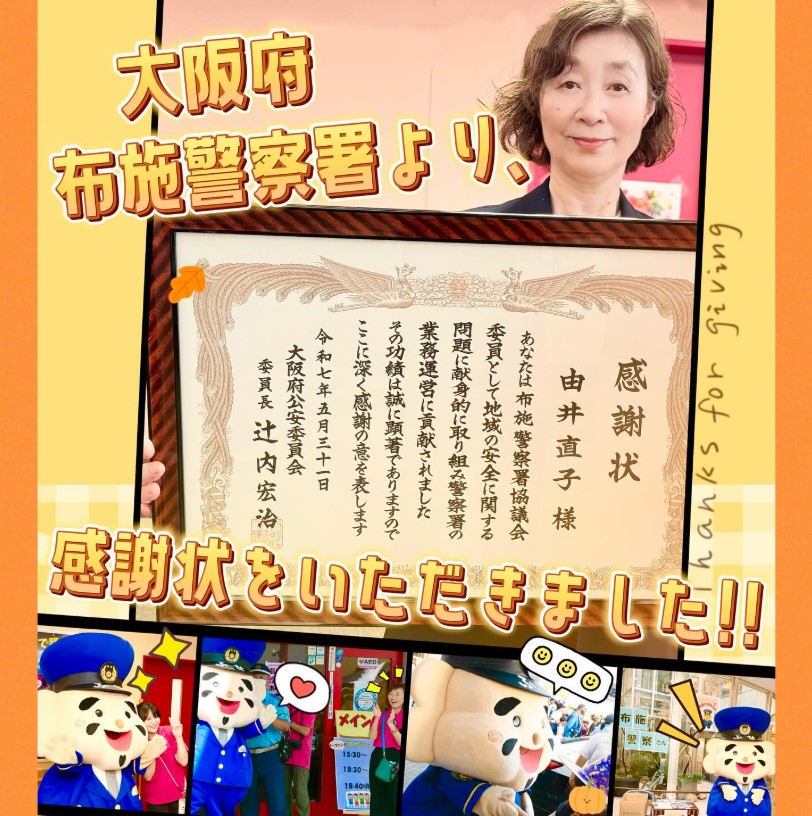 大阪府
布施警察署より、
感謝状
由井直子様
あなたは布施警察署協議会
委員として地域の安全に関する
問題に献身的に取り組み警察署の
業務運営に貢献されました
その功績は誠に顕著でありますので
ここに深く感謝の意を表します
令和七年五月三十一日
大阪府公安委員会
委員長 辻内宏治
Thanks for giving
感謝状をいただきました!!
AED
メイン
15:30~
18:30~
18:40~
布施
警察さん